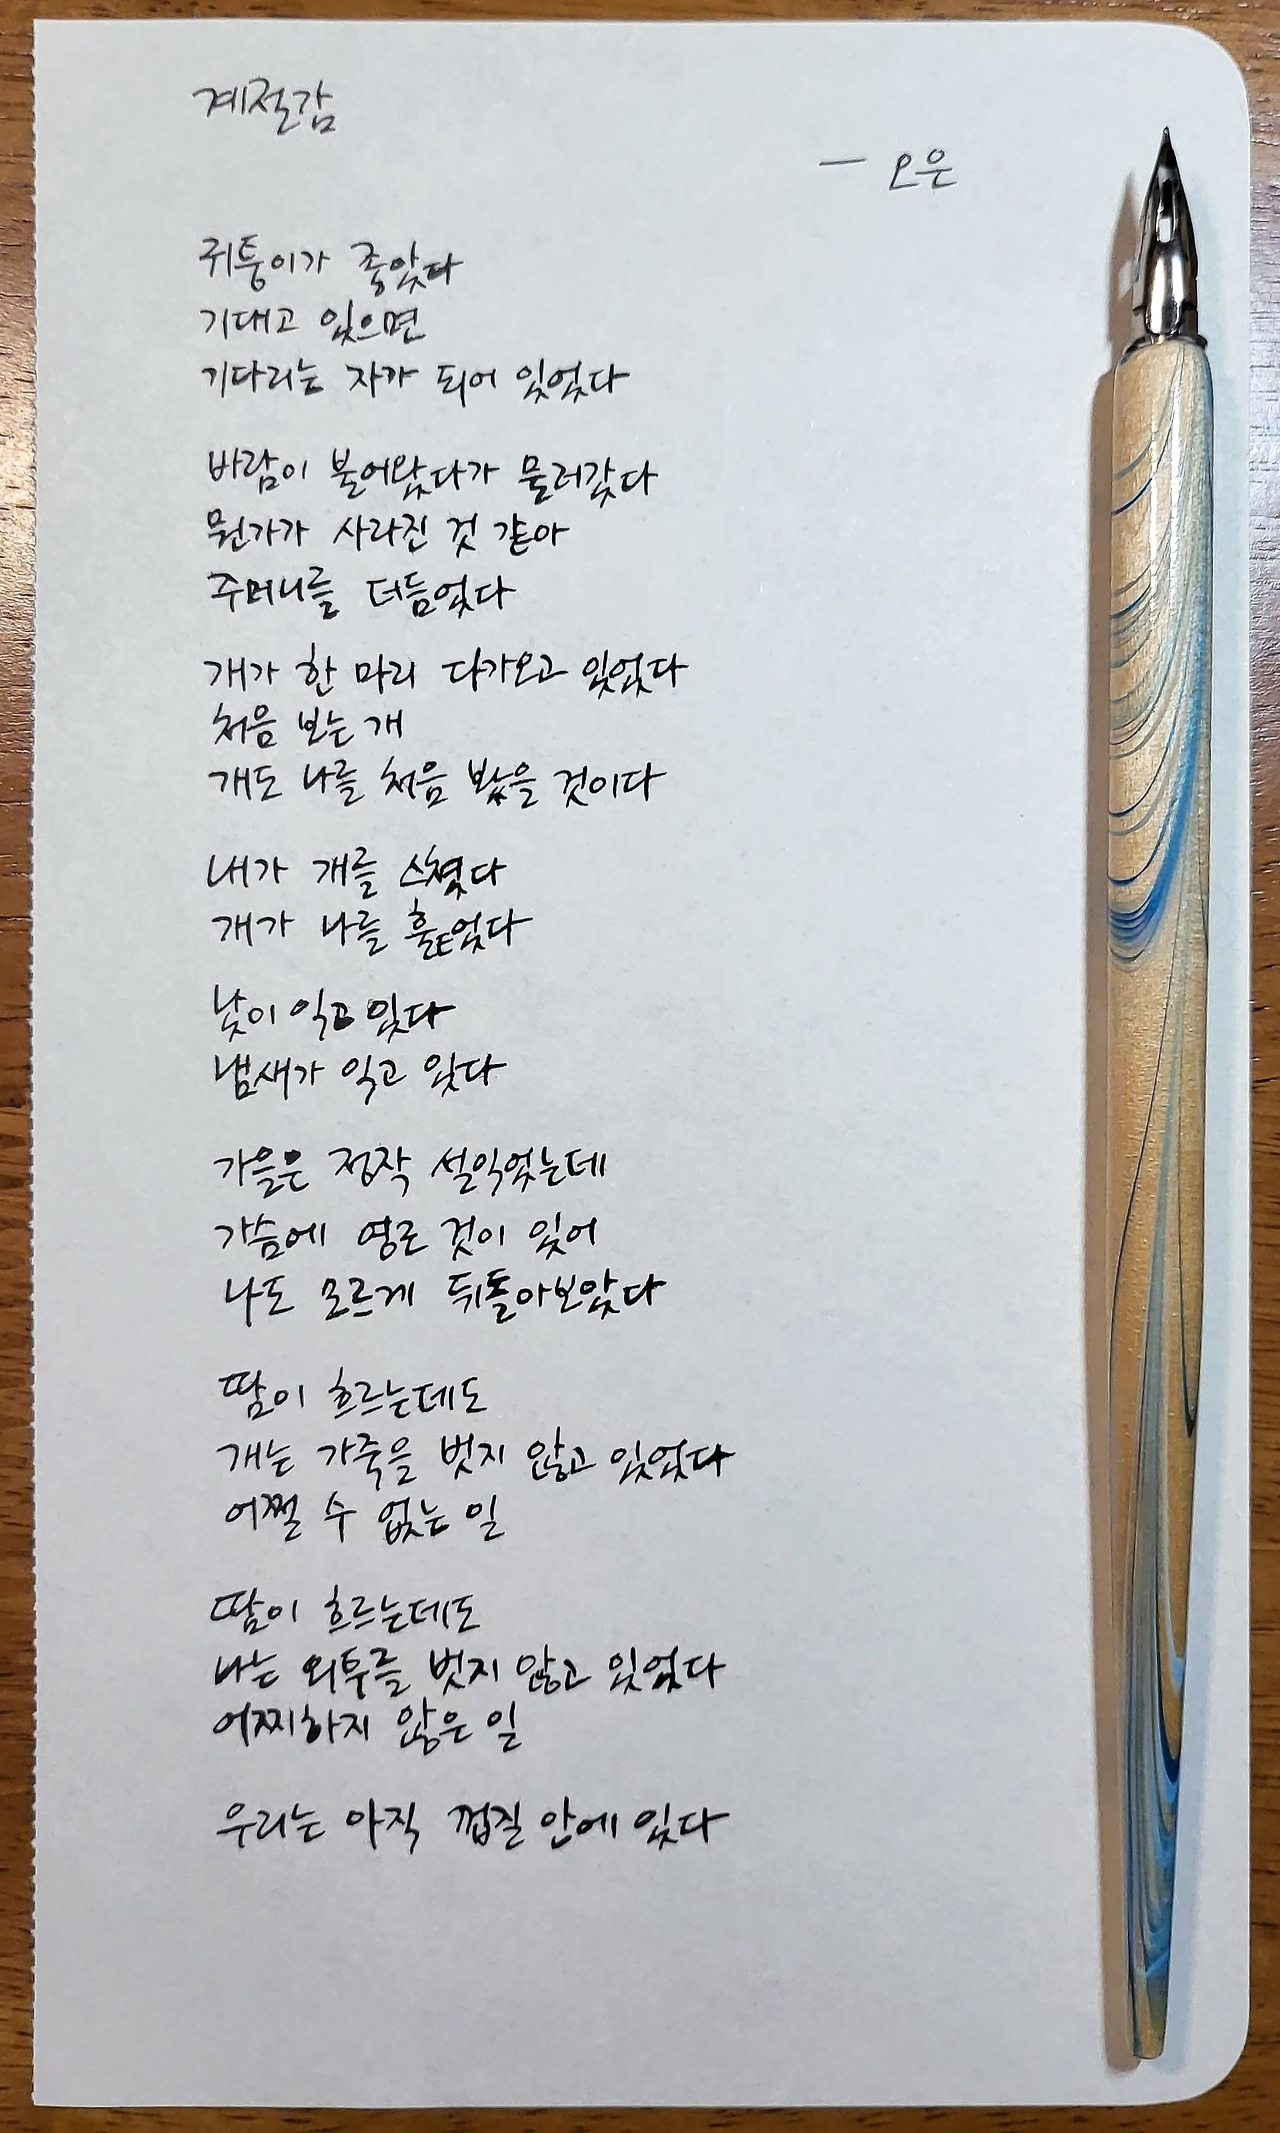 계절감
— 오은
귀퉁이가 좋았다
기대고 있으면
기다리는 자가 되어 있었다
바람이 불어왔다가 물러갔다
뭔가가 사라진 것 같아
주머니를 더듬었다
개가 한 마리 다가오고 있었다
처음 보는 개
개도 나를 처음 봤을 것이다
내가 개를 스쳤다
개가 나를 훑었다
낯이 익고 있다
냄새가 익고 있다
가을은 정작 설익었는데
가슴에 영근 것이 있어
나도 모르게 뒤돌아보았다
땀이 흐르는데도
개는 가죽을 벗지 않고 있었다
어쩔 수 없는 일
땀이 흐르는데도
나는 외투를 벗지 않고 있었다
어찌하지 않은 일
우리는 아직 껍질 안에 있다